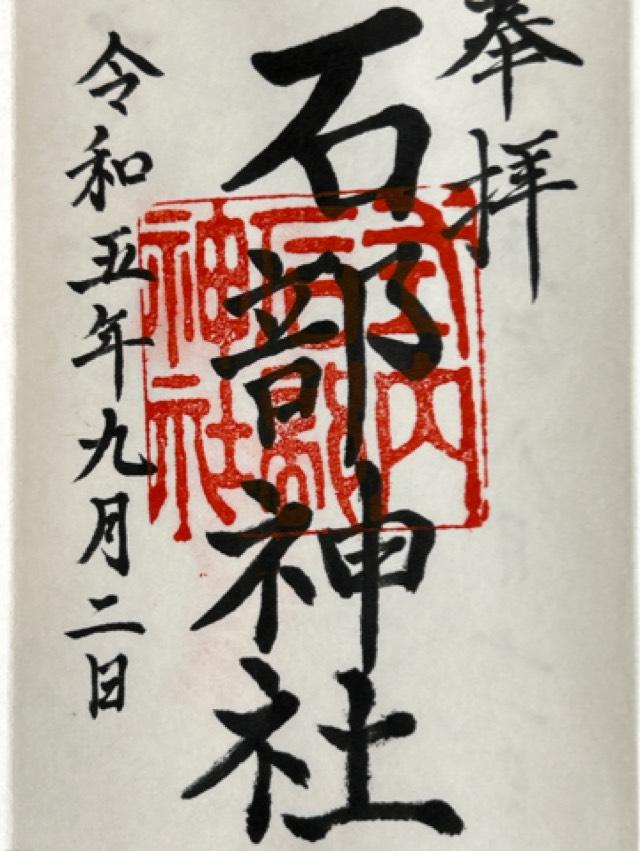 奉拝
石部神社
式内
石部
神社
令和五年九月二日